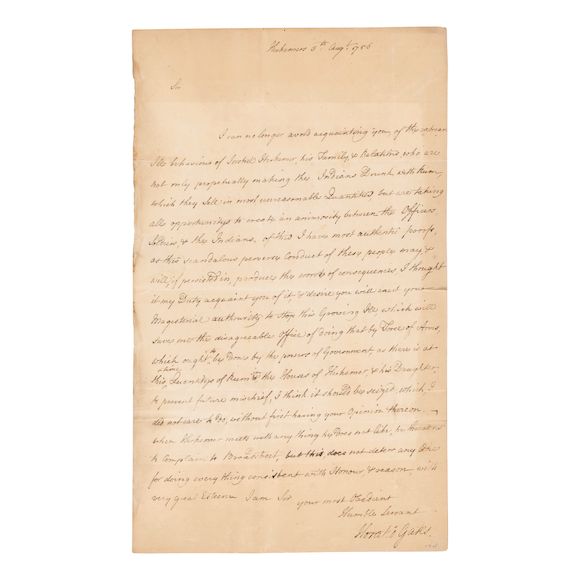 Herkemers 5th Augt. 1756
Sir
I can no longer avoid acquainting you, of the
behaviour of Herkemer, his Family, & Relations, who are
not only perpetually making the Indians Drunk with Rum,
which they Sell in most unreasonable Quantities, but are taking
all opportunitys to create an animosity between the Officers
Soldiers, & the Indians, of this I have most authentic proofs,
as this scandalous perverse Conduct of these people may &
will, if persisted in, produce the worst of consequences, I thought
it my Duty acquaint you of it & desire you will exert your
Magisterial authority to Stop this Growing Ill, which will
save me the disagreeable Office of doing that by Force of Arms,
which ought to be Done by the power of Government, as there is at
this time, Quantitys of Rum in the Houses of Herkemer, & his Daughter,
to prevent future mischief, I think it should be seized, which I
did not care to do, without first having your Opinion thereon. —
when Herkemer meets with any thing he Does not like, he threatens
to complain to Bradstreet, but this does not deter any One
for doing every thing consistent with Honour & reason, with
very great Esteem I am Sir your most Obedient
Humble Servant
Horatio Gates